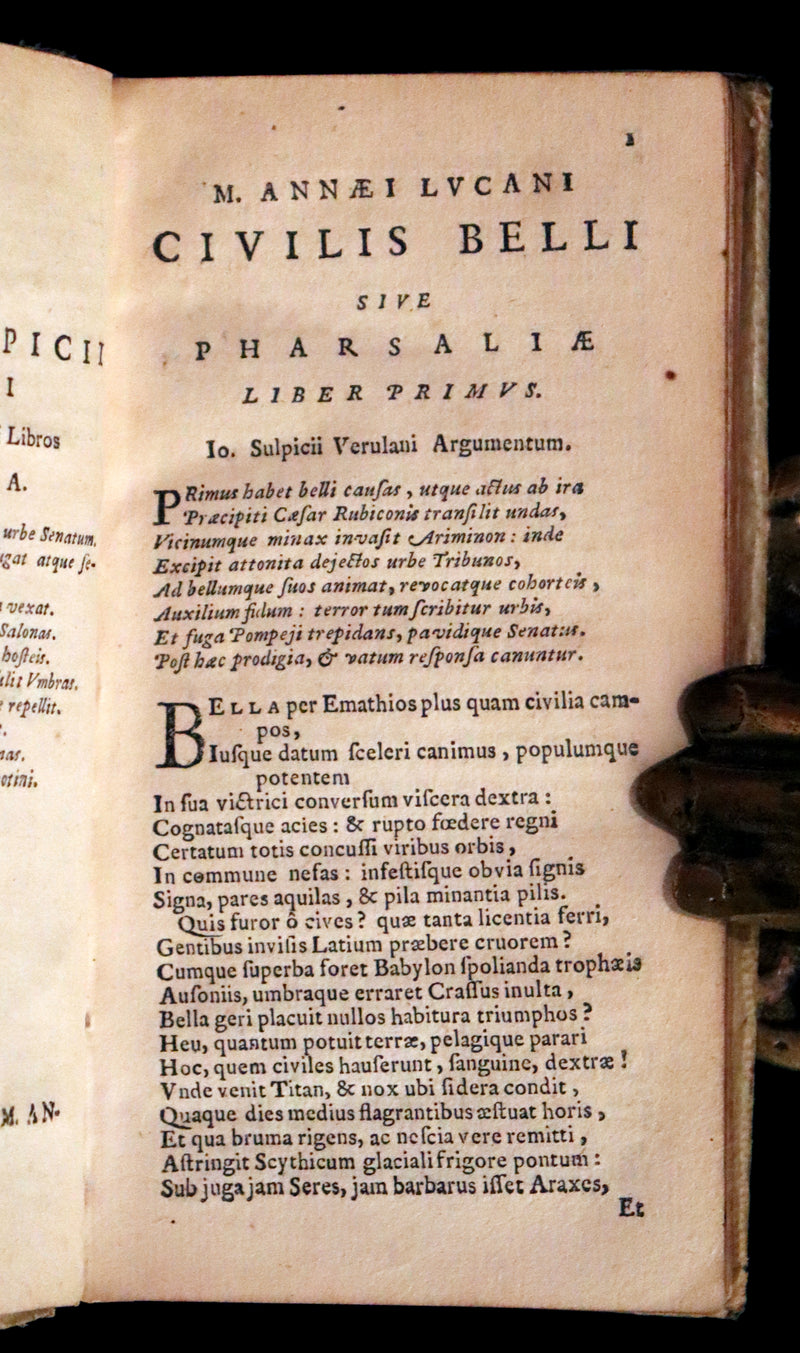 PICII
I
Libros
A.
urbe Senatum.
atque ſe-
vexat.
Salonas.
hoſteis.
Vmbras.
repellit.
M. AN-
1
M. ANNÆI LVCANI
CIVILIS BELLI
SIVE
PHARSALIÆ
LIBER PRIMVS.
Io. Sulpicii Verulani Argumentum.
PRimus habet belli cauſas, utque actus ab ira
Præcipiti Cæſar Rubiconis tranſilit undas,
Vicinumque minax invaſit Ariminon: inde
Excipit attonita dejectos urbe Tribunos,
Ad bellumque ſuos animat, revocatque cohorteis,
Auxilium fidum: terror tum ſcribitur urbis,
Et fuga Pompeji trepidans, pavidique Senatus.
Poſt hæc prodigia, & vatum reſponſa canuntur.
BELLA per Emathios plus quam civilia cam-
pos,
Iuſque datum ſceleri canimus, populumque
potentem
In ſua victrici converſum viſcera dextra:
Cognataſque acies: & rupto fœdere regni
Certatum totis concuſſi viribus orbis,
In commune nefas: infeſtiſque obvia ſignis
Signa, pares aquilas, & pila minantia pilis.
Quis furor ô cives? quæ tanta licentia ferri,
Gentibus inviſis Latium præbere cruorem?
Cumque ſuperba foret Babylon ſpolianda trophæis
Auſoniis, umbraque erraret Craſſus inulta,
Bella geri placuit nullos habitura triumphos?
Heu, quantum potuit terræ, pelagique parari
Hoc, quem civiles hauſerunt, ſanguine, dextræ!
Vnde venit Titan, & nox ubi ſidera condit,
Quaque dies medius flagrantibus æſtuat horis,
Et qua bruma rigens, ac neſcia vere remitti,
Aſtringit Scythicum glaciali frigore pontum:
Sub juga jam Seres, jam barbarus iſſet Araxes,
Et